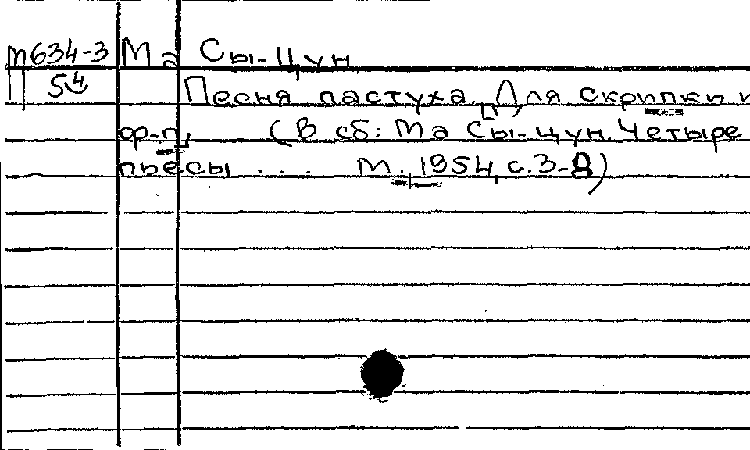 М634-3 Ма Сы-Цун
54 Песня пастуха. Для скрипки и
ф-п. (В сб: Ма Сы-цун. Четыре
пьесы ... М., 1954, с.3-8)